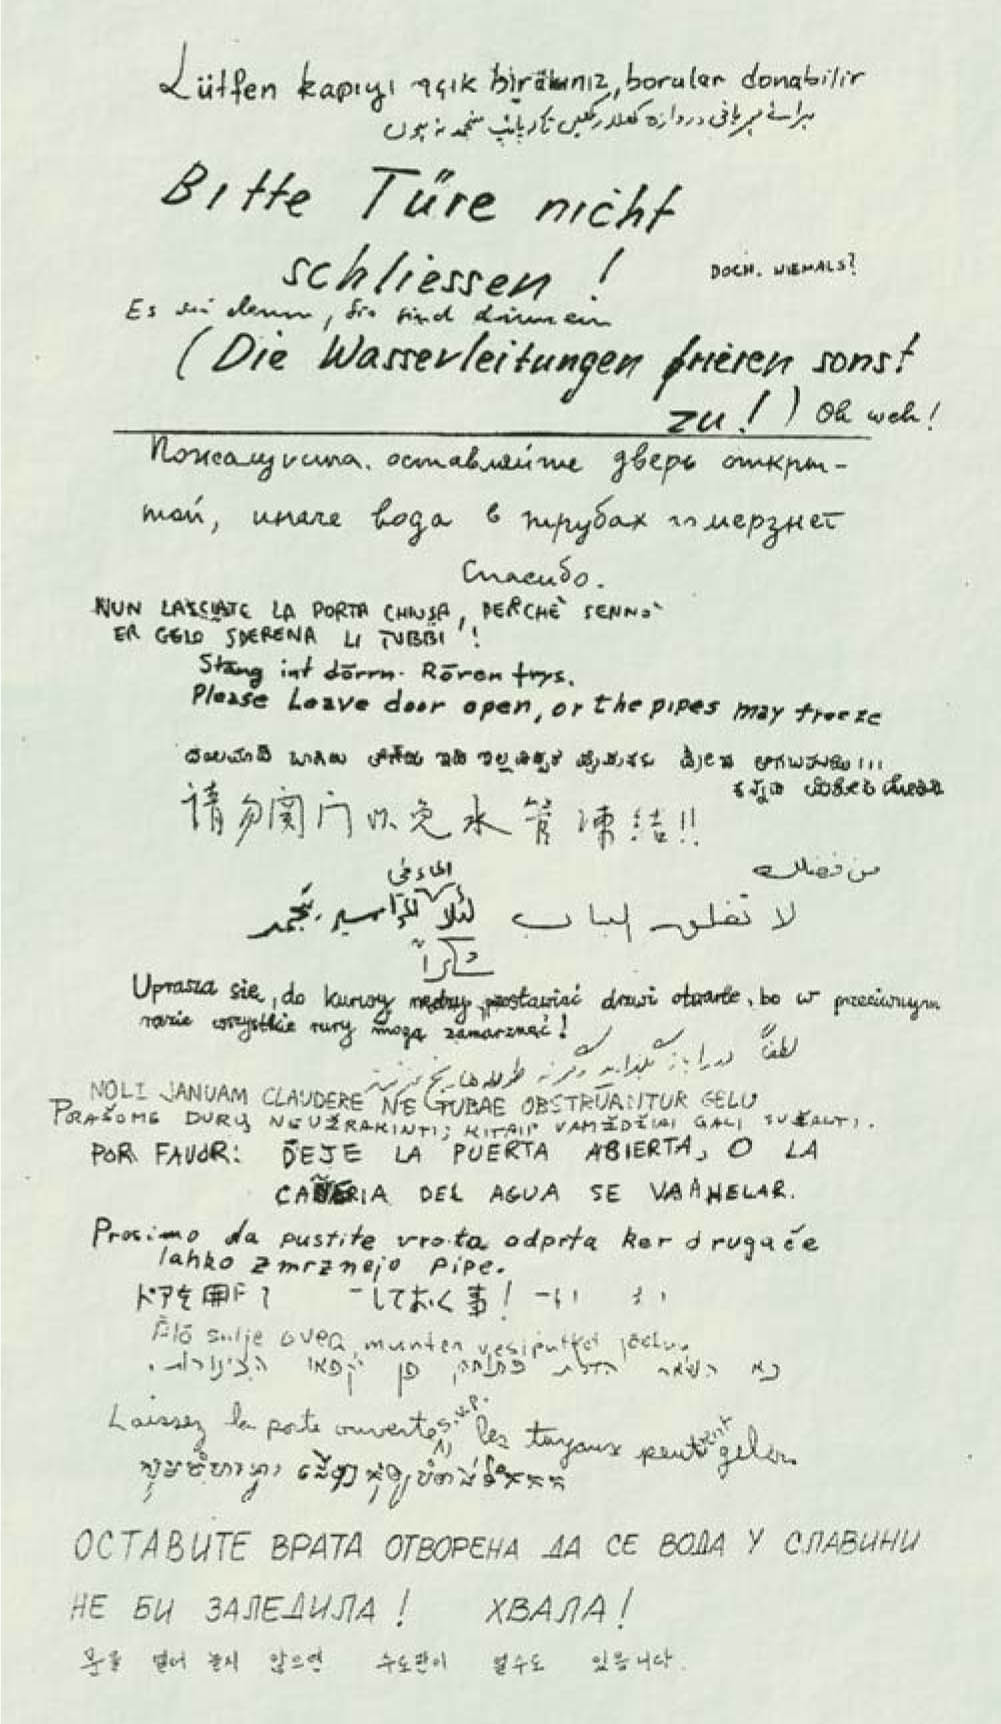 Lütfen kapıyı açık bırakınız, borular donabilir
برائے مہربانی دروازہ کھلا رکھیں تاکہ پائپ منجمد نہ ہوں
Bitte Türe nicht
schliessen!
DOCH. NIEMALS?
Es sei denn, Sie sind drinnen
(Die Wasserleitungen frieren sonst
zu!) Oh weh!
Пожалуйста. оставляйте дверь откры-
той, иначе вода в трубах замерзнет
Спасибо.
NUN LASCIATE LA PORTA CHIUSA, PERCHÈ SENNÒ
ER GELO SDERENA LI TUBBI!
Stäng int dörrn. Rören frys.
Please Leave door open, or the pipes may freeze
請勿関门以免水管凍结!!
من فضلك
لا تغلق الباب لئلا الماء في المواسير يتجمد
شكراً
Uprasza się, do kurwy nędzy, pozostawiać drzwi otwarte, bo w przeciwnym
razie wszystkie rury mogą zamarznąć!
لطفاً در را باز بگذارید وگرنه لوله ها یخ میزنند
NOLI JANUAM CLAUDERE NE TUBAE OBSTRUANTUR GELU
PRAŠOME DURŲ NEUŽRAKINTI; KITAIP VAMZDŽIAI GALI SUŠALTI.
POR FAVOR: DEJE LA PUERTA ABIERTA, O LA
CAÑERIA DEL AGUA SE VA A HELAR.
Prosimo da pustite vrata odprta ker drugače
lahko zmrznejo pipe.
ドアを開 しておく事!
Älö sulje ovea, munten vesiputket jäätyy
נא השאר הדלת פתוחה פן יקפאו הצינורות.
Laissez la porte ouverte s.v.p. les tuyaux peuvent geler.
ОСТАВИТЕ ВРАТА ОТВОРЕНА ДА СЕ ВОДА У СЛАВИНИ
НЕ БИ ЗАЛЕДИЛА! ХВАЛА!
문을 열어 놓지 않으면 수도관이 얼수도 있읍니다.